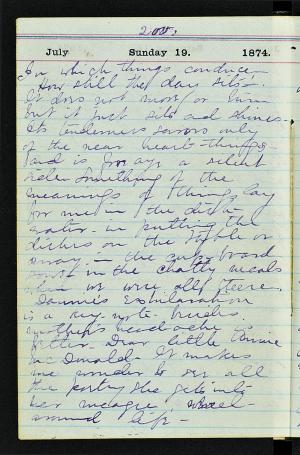 200.
July Sunday 19. 1874.
In which things conduce
How still the day sits.
It does not move or
but it just sits and shines.
Its tenderness only
of the near heart-things
and is a silent
Something of the
meanings of things lay
for me in the dish
water - in putting the
dishes on the table or
away - in the cupboard
in the chatty meals
when we were all here.
exhilaration
is a key note
mother's headache is
better. Dear little
McDonald. It makes
me wonder to see all
the poetry she gets into
her meagre, wheel-
around life -